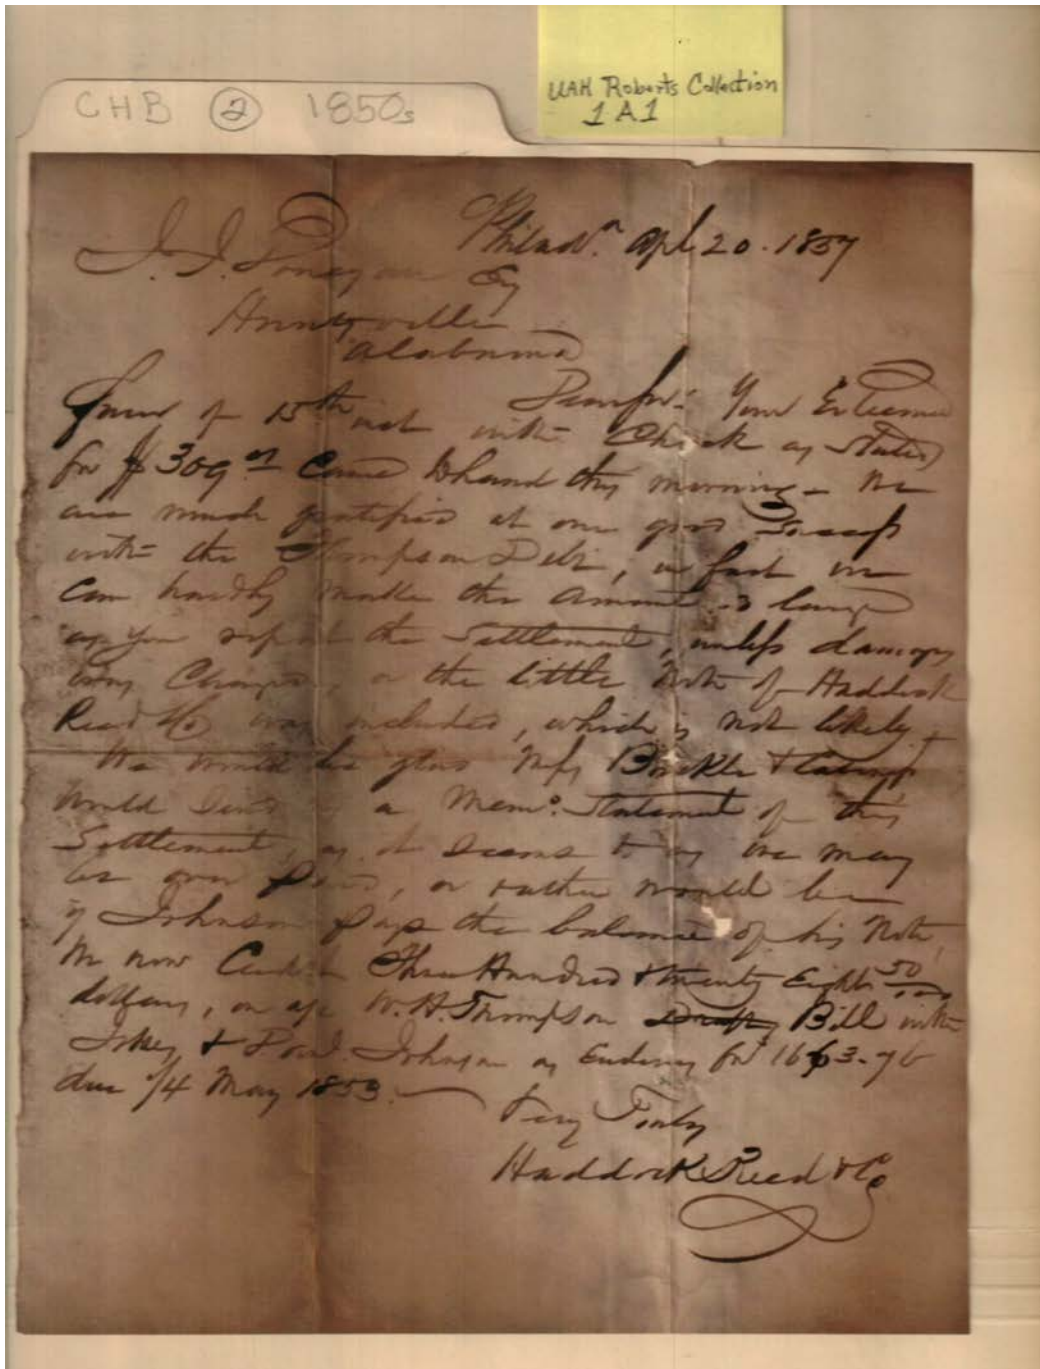 UAH Roberts Collection
1A1
CHB ② 1850s
Philada. Apl 20. 1857
J. J. Esq
Huntsville
Alabama
Dear Sir: Your Esteemed
favor of 15th inst with Check as Stated
for $309.
Came to hand this morning - We
are much gratified at our good Success
with the Thompson Debt, in fact we
Can hardly make the amount so large
as you report the Settlement, unless damages
being Charged, or the little Note of Haddock
Reed & Co was included, which is not likely.
We would be glad Messrs &
would Send us a Memo. Statement of this
Settlement, as it Seems to us we may
be over paid, or rather would be
if Johnson pays the balance of his Note,
We now Credit Three Hundred & twenty Eight 50/100
dollars, on a/c W. H. Thompson Bill with
& Johnson as for 1663.76
due 1/4 May 1853.
Very Truly
Haddock Reed & Co